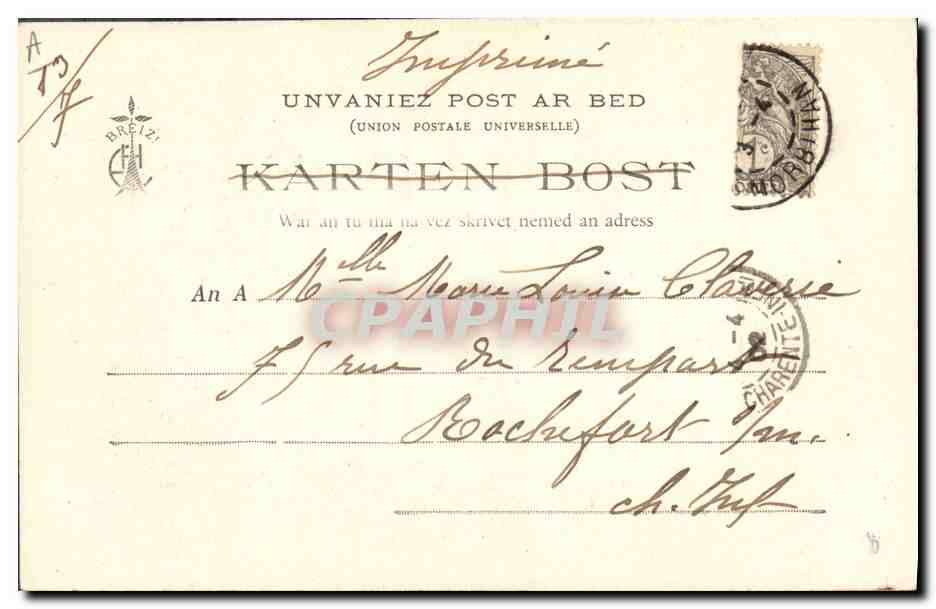 A
13/7
Imprimé
UNVANIEZ POST AR BED
(UNION POSTALE UNIVERSELLE)
BREIZ!
EH
KARTEN BOST
War an tu ma na vez skrivet nemed an adress
MORBIHAN
An A Mlle Marie Louise Claverie
CPAPHIL
75 rue du rempart
CHARENTE-INFRE
-4
02
Rochefort s/m.
ch. Inf